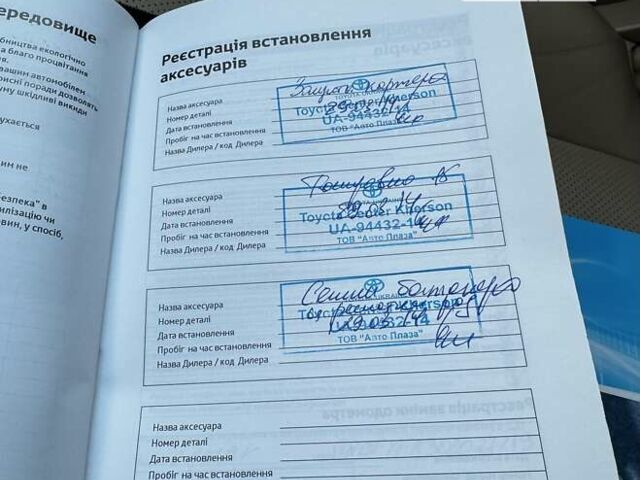 ередовище
бництва екологічно
а благо процвітання
я.
вашин автомобілем
рисні поради дозволять
ну шкідливі викиди
ухається
ин не
безпека" в
илізацію чи
овин, у спосіб,
Реєстрація встановлення
аксесуарів
Назва аксесуара
Номер деталі
Дата встановлення
Пробіг на час встановлення
Назва Дилера / код Дилера
Защита картера
Toyota Center Kherson
UA-94432-14
ТОВ "Авто Плаза"
Назва аксесуара
Номер деталі
Дата встановлення
Пробіг на час встановлення
Назва Дилера / код Дилера
Toyota Center Kherson
UA-94432-14
ТОВ "Авто Плаза"
Назва аксесуара
Номер деталі
Дата встановлення
Пробіг на час встановлення
Назва Дилера / код Дилера
UKRAINE
Toyota Center Kherson
UA-94432-14
ТОВ "Авто Плаза"
Назва аксесуара
Номер деталі
Дата встановлення
Пробіг на час встановлення